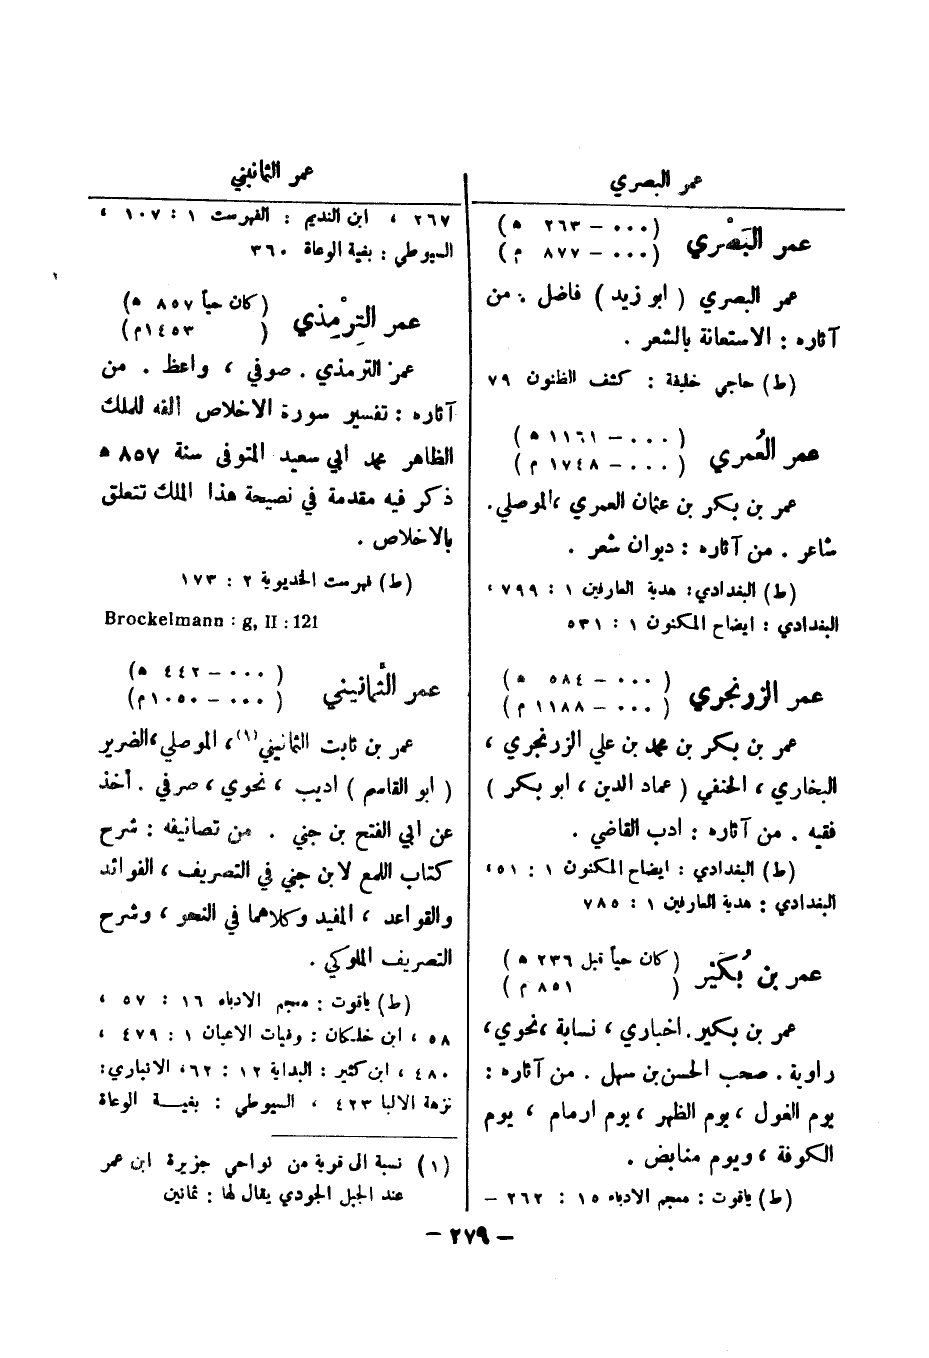 عمر البصري
عمر البَصْري
( ٠٠٠ – ٢٦٣ ه )
( ٠٠٠ – ٨٧٧ م )
عمر البصري ( ابو زيد ) فاضل . من
آثاره : الاستعانة بالشعر .
(ط) حاجي خليفة : كشف الظنون ٧٩
عمر العُمري
( ٠٠٠ – ١١٦١ ه )
( ٠٠٠ – ١٧٤٨ م )
عمر بن بكر بن عثمان العمري ، الموصلي .
شاعر . من آثاره : ديوان شعر .
(ط) البغدادي : هدية العارفين ١ : ٧٩٩ ،
البغدادي : ايضاح المكنون ١ : ٥٣١
عمر الزرنجري
( ٠٠٠ – ٥٨٤ ه )
( ٠٠٠ – ١١٨٨ م )
عمر بن بكر بن محمد بن علي الزرنجري ،
البخاري ، الحنفي ( عماد الدين ، ابو بكر )
فقيه . من آثاره : ادب القاضي .
(ط) البغدادي : ايضاح المكنون ١ : ٥١ ،
البغدادي : هدية العارفين ١ : ٧٨٥
عمر بن بُكَيْر
( كان حياً قبل ٢٣٦ ه )
( ٨٥١ م )
عمر بن بكير . اخباري ، نسابة ، نحوي ،
راوية . صحب الحسن بن سهل . من آثاره :
يوم الغول ، يوم الظهر ، يوم ارمام ، يوم
الكوفة ، ويوم منابض .
(ط) ياقوت : معجم الادباء ١٥ : ٢٦٢ –
عمر الثمانيني
٢٦٧ ، ابن النديم : الفهرست ١ : ١٠٧ ،
السيوطي : بغية الوعاة ٣٦٠
عمر التِرمْذي
( كان حياً ٨٥٧ ه )
( ١٤٥٣م )
عمر الترمذي . صوفي ، واعظ . من
آثاره : تفسير سورة الاخلاص ألفه للملك
الظاهر محمد ابي سعيد المتوفى سنة ٨٥٧ ه
ذكر فيه مقدمة في نصيحة هذا الملك تتعلق
بالاخلاص .
(ط) فهرست الخديوية ٢ : ١٧٣
Brockelmann : g, II : 121
عمر الثَّمانيني
( ٠٠٠ – ٤٤٢ ه )
( ٠٠٠ – ١٠٥٠م )
عمر بن ثابت الثمانيني (١) ، الموصلي ، الضرير
( ابو القاسم ) اديب ، نحوي ، صرفي . أخذ
عن ابي الفتح بن جني . من تصانيفه : شرح
كتاب اللمع لابن جني في التصريف ، الفوائد
والقواعد ، المفيد وكلاهما في النحو ، وشرح
التصريف الملوكي .
(ط) ياقوت : معجم الادباء ١٦ : ٥٧ ،
٥٨ ، ابن خلكان : وفيات الاعيان ١ : ٤٧٩ ،
٤٨٠ ، ابن كثير : البداية ١٢ : ٦٢ ، الانباري :
نزهة الالبا ٤٢٣ ، السيوطي : بغية الوعاة
(١) نسبة الى قرية من نواحي جزيرة ابن عمر
عند الجبل الجودي يقال لها : ثمانين
– ٢٧٩ –